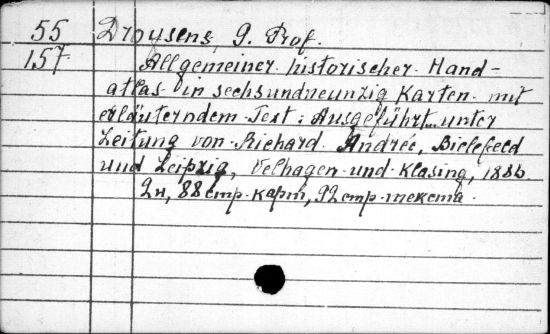 55 Droysens, G. Prof.
157 Allgemeiner historischer Hand-
atlas in sechsundneunzig Karten mit
erläuterndem Text: Ausgeführt unter
Leitung von Richard Andrée, Bielefeld
und Leipzig, Velhagen und Klasing, 1886
2н, 88 стр. карт, 92 стр. текста.